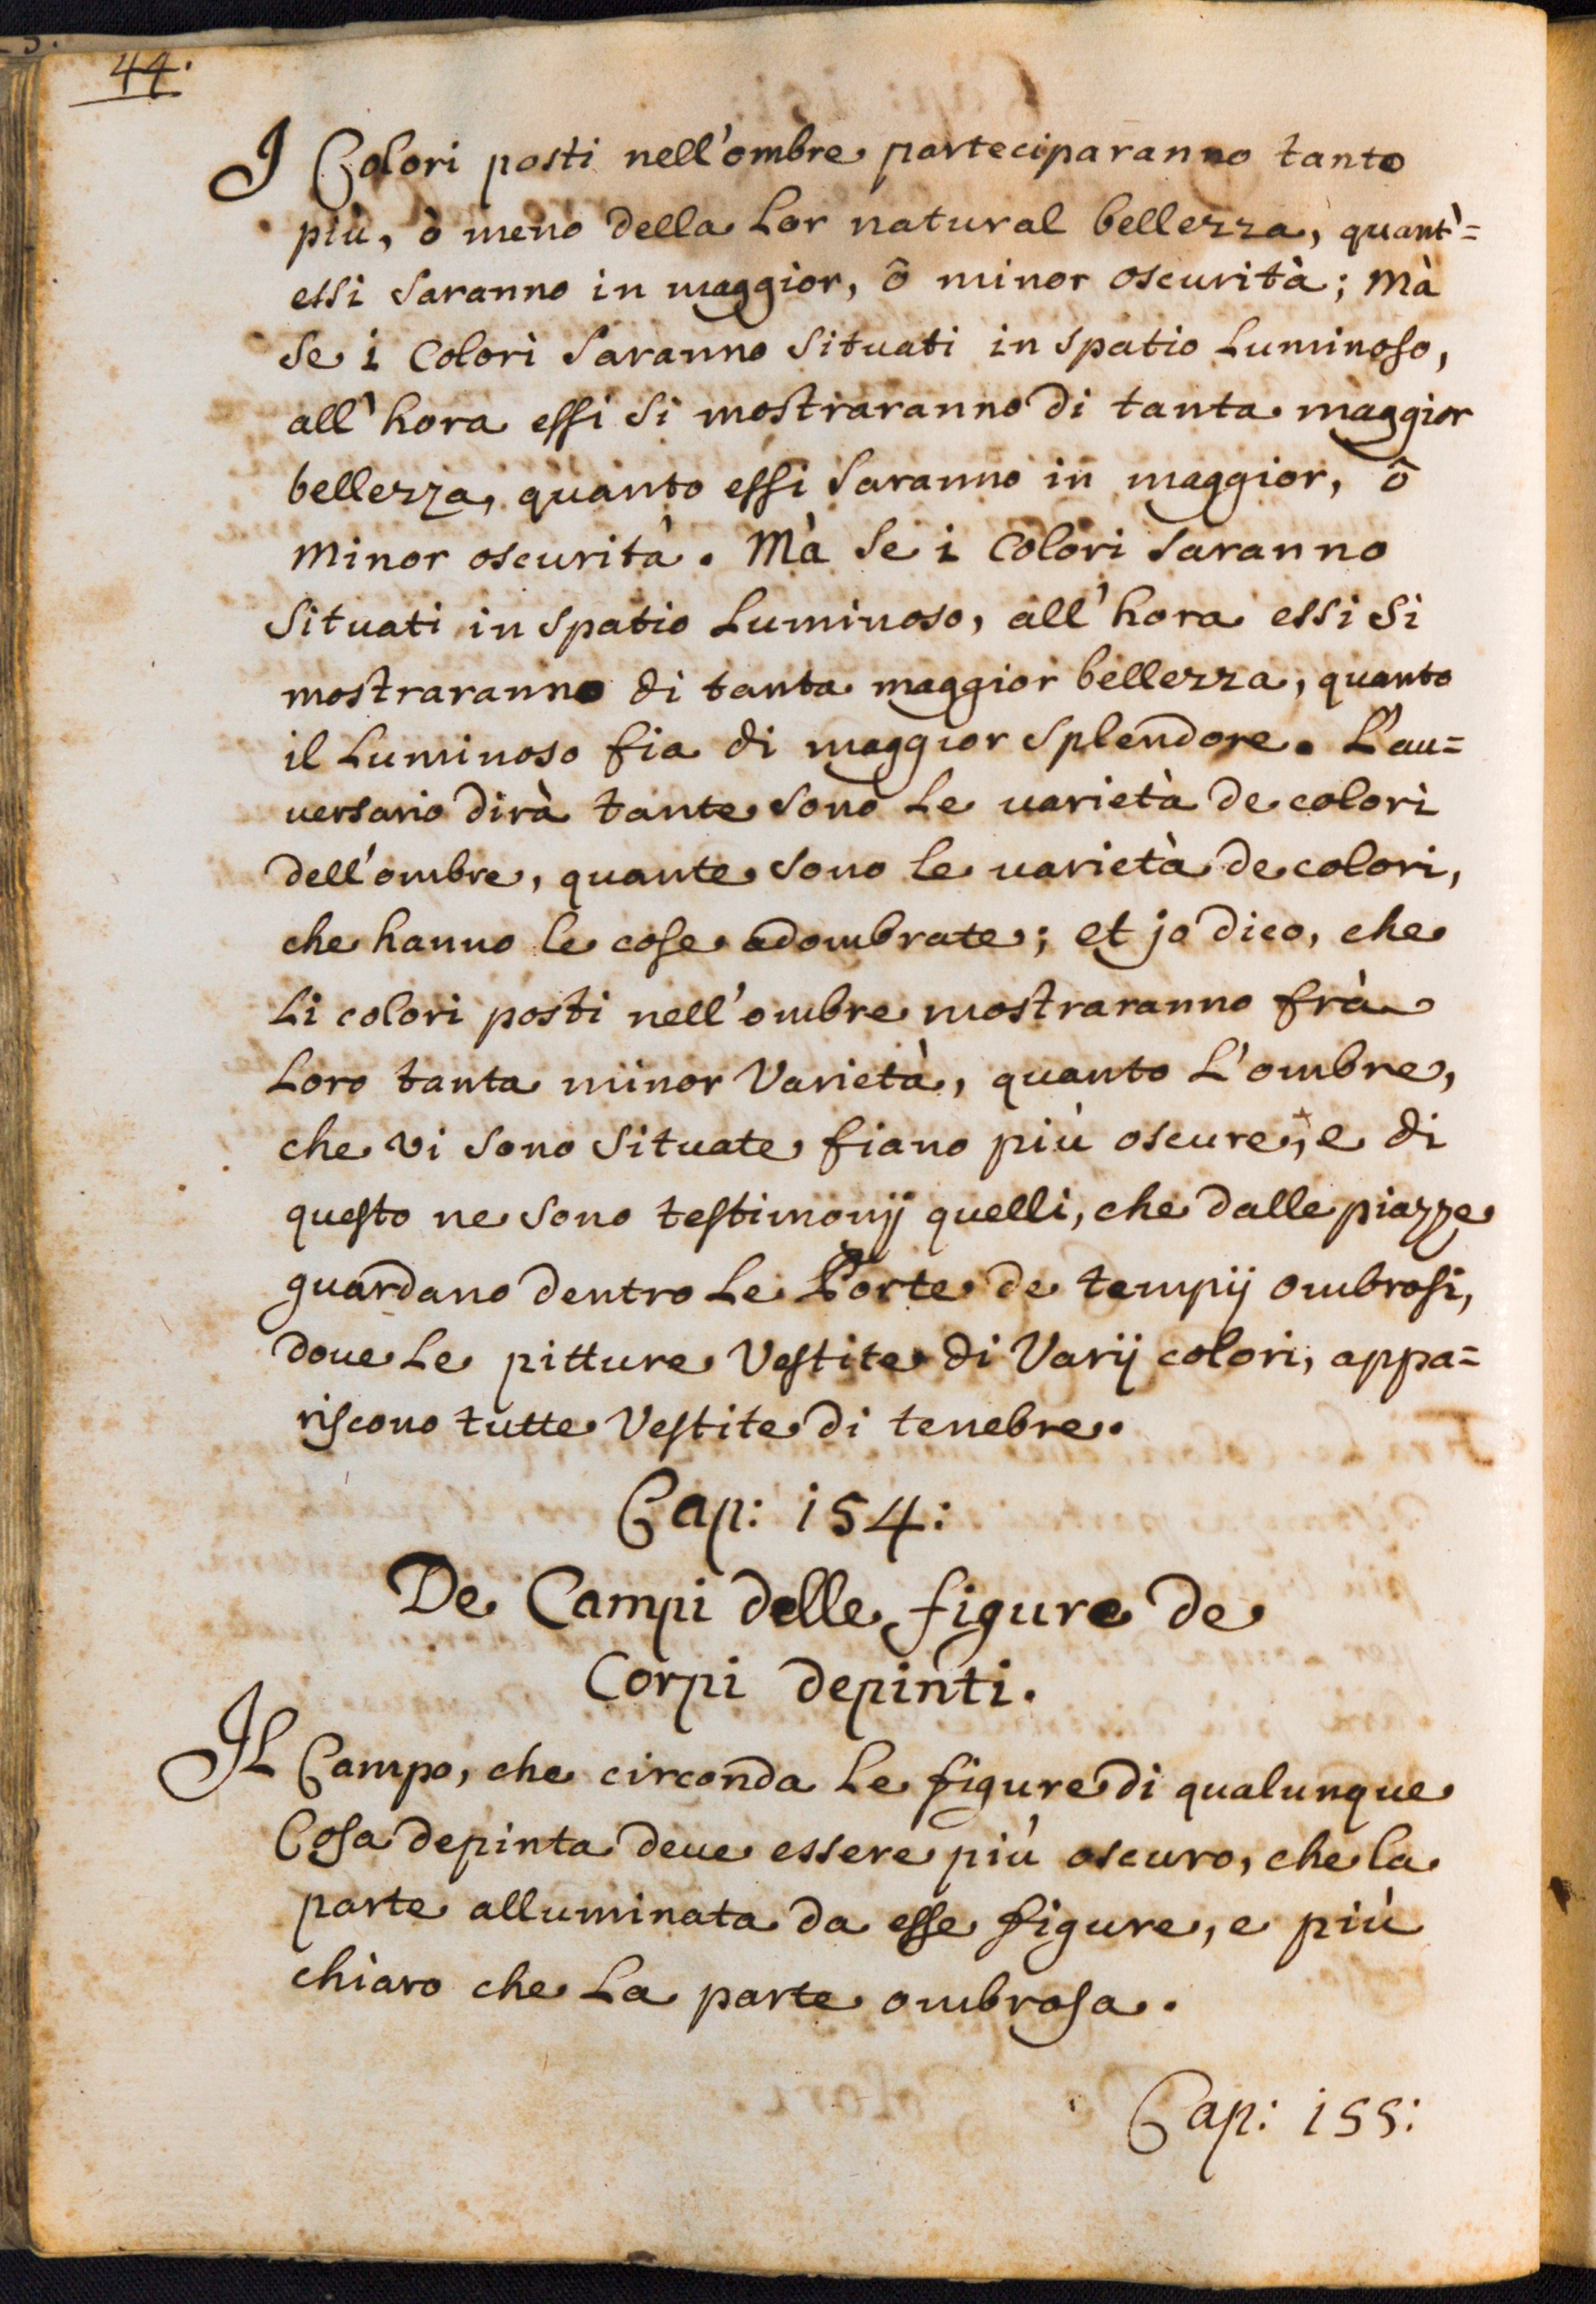 44.
I Colori posti nell'ombre parteciparanno tanto
più, ò meno della Lor natural bellezza, quant'=
essi saranno in maggior, ô minor oscurità; Mà
se i Colori saranno situati in spatio Luminoso,
all'hora essi si mostraranno di tanta maggior
bellezza, quanto essi saranno in maggior, ô
minor oscurità. Mà se i Colori saranno
situati in spatio Luminoso, all'hora essi si
mostraranno di tanta maggior bellezza, quanto
il Luminoso fia di maggior splendore. L'au=
uersario dirà tante sono Le uarietà de colori
dell'ombre, quante sono le uarietà de colori,
che hanno le cose adombrate; et jo dico, che
Li colori posti nell'ombre mostraranno frà
Loro tanta minor Varietà, quanto L'ombre,
che vi sono situate fiano più oscure, e di
questo ne sono testimonij quelli, che dalle piazze
guardano dentro Le Porte de tempij ombrosi,
doue Le pitture Vestite di Varij colori, appa=
riscono tutte Vestite di tenebre.
Cap: 154:
De Campi delle figure de
Corpi depinti.
IL Campo, che circonda Le figure di qualunque
Cosa depinta deue essere più oscuro, che la
parte alluminata da esse figure, e più
chiaro che La parte ombrosa.
Cap: 155: